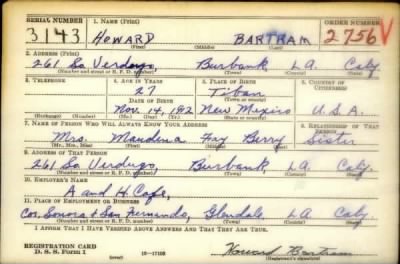 SERIAL NUMBER 1. NAME (Print) ORDER NUMBER
3143 HOWARD BARTRAM 2756 V
(First) (Middle) (Last)
2. ADDRESS (Print)
261 So. Verdugo, Burbank LA. Caly
(Number and street or R. F. D. number) (Town) (County) (State)
3. TELEPHONE 4. AGE IN YEARS 5. PLACE OF BIRTH 6. COUNTRY OF CITIZENSHIP
27 Tiban
DATE OF BIRTH (Town or county)
Nov. 14, 1912 New Mexico U.S.A.
(Exchange) (Number) (Mo.) (Day) (Yr.) (State or country)
7. NAME OF PERSON WHO WILL ALWAYS KNOW YOUR ADDRESS 8. RELATIONSHIP OF THAT PERSON
Mrs. Maudena Fay Berry Sister
(Mr., Mrs., Miss) (First) (Middle) (Last)
9. ADDRESS OF THAT PERSON
261 So. Verdugo, Burbank, LA Caly.
(Number and street or R. F. D. number) (Town) (County) (State)
10. EMPLOYER'S NAME
A and H Cafe,
11. PLACE OF EMPLOYMENT OR BUSINESS
Cor. Sonora & San Fernando, Glendale LA Caly.
(Number and street or R. F. D. number) (Town) (County) (State)
I AFFIRM THAT I HAVE VERIFIED ABOVE ANSWERS AND THAT THEY ARE TRUE.
REGISTRATION CARD
D. S. S. Form 1 (over) Howard Bartram
(Registrant's signature)